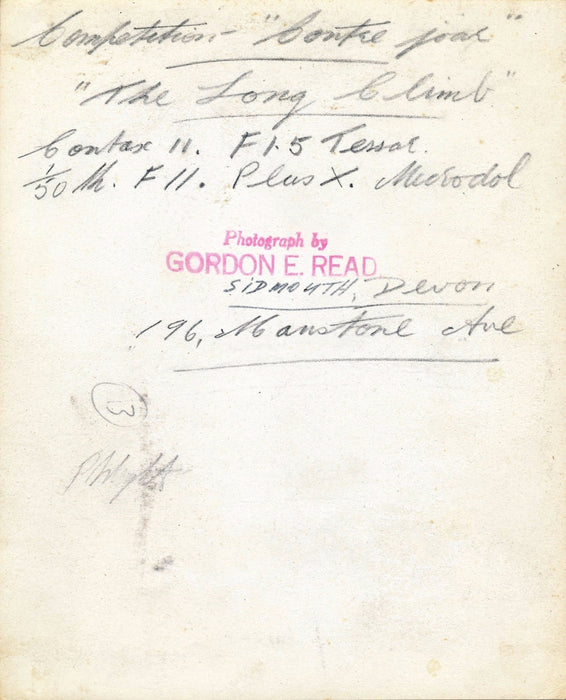 Competition - "Contre jour"
"The Long Climb"
Contax II. F1.5 Tessar.
1/50 th. F11. Plus X. Microdol
Photograph by
GORDON E. READ
SIDMOUTH, Devon
196, Manstone Ave
13